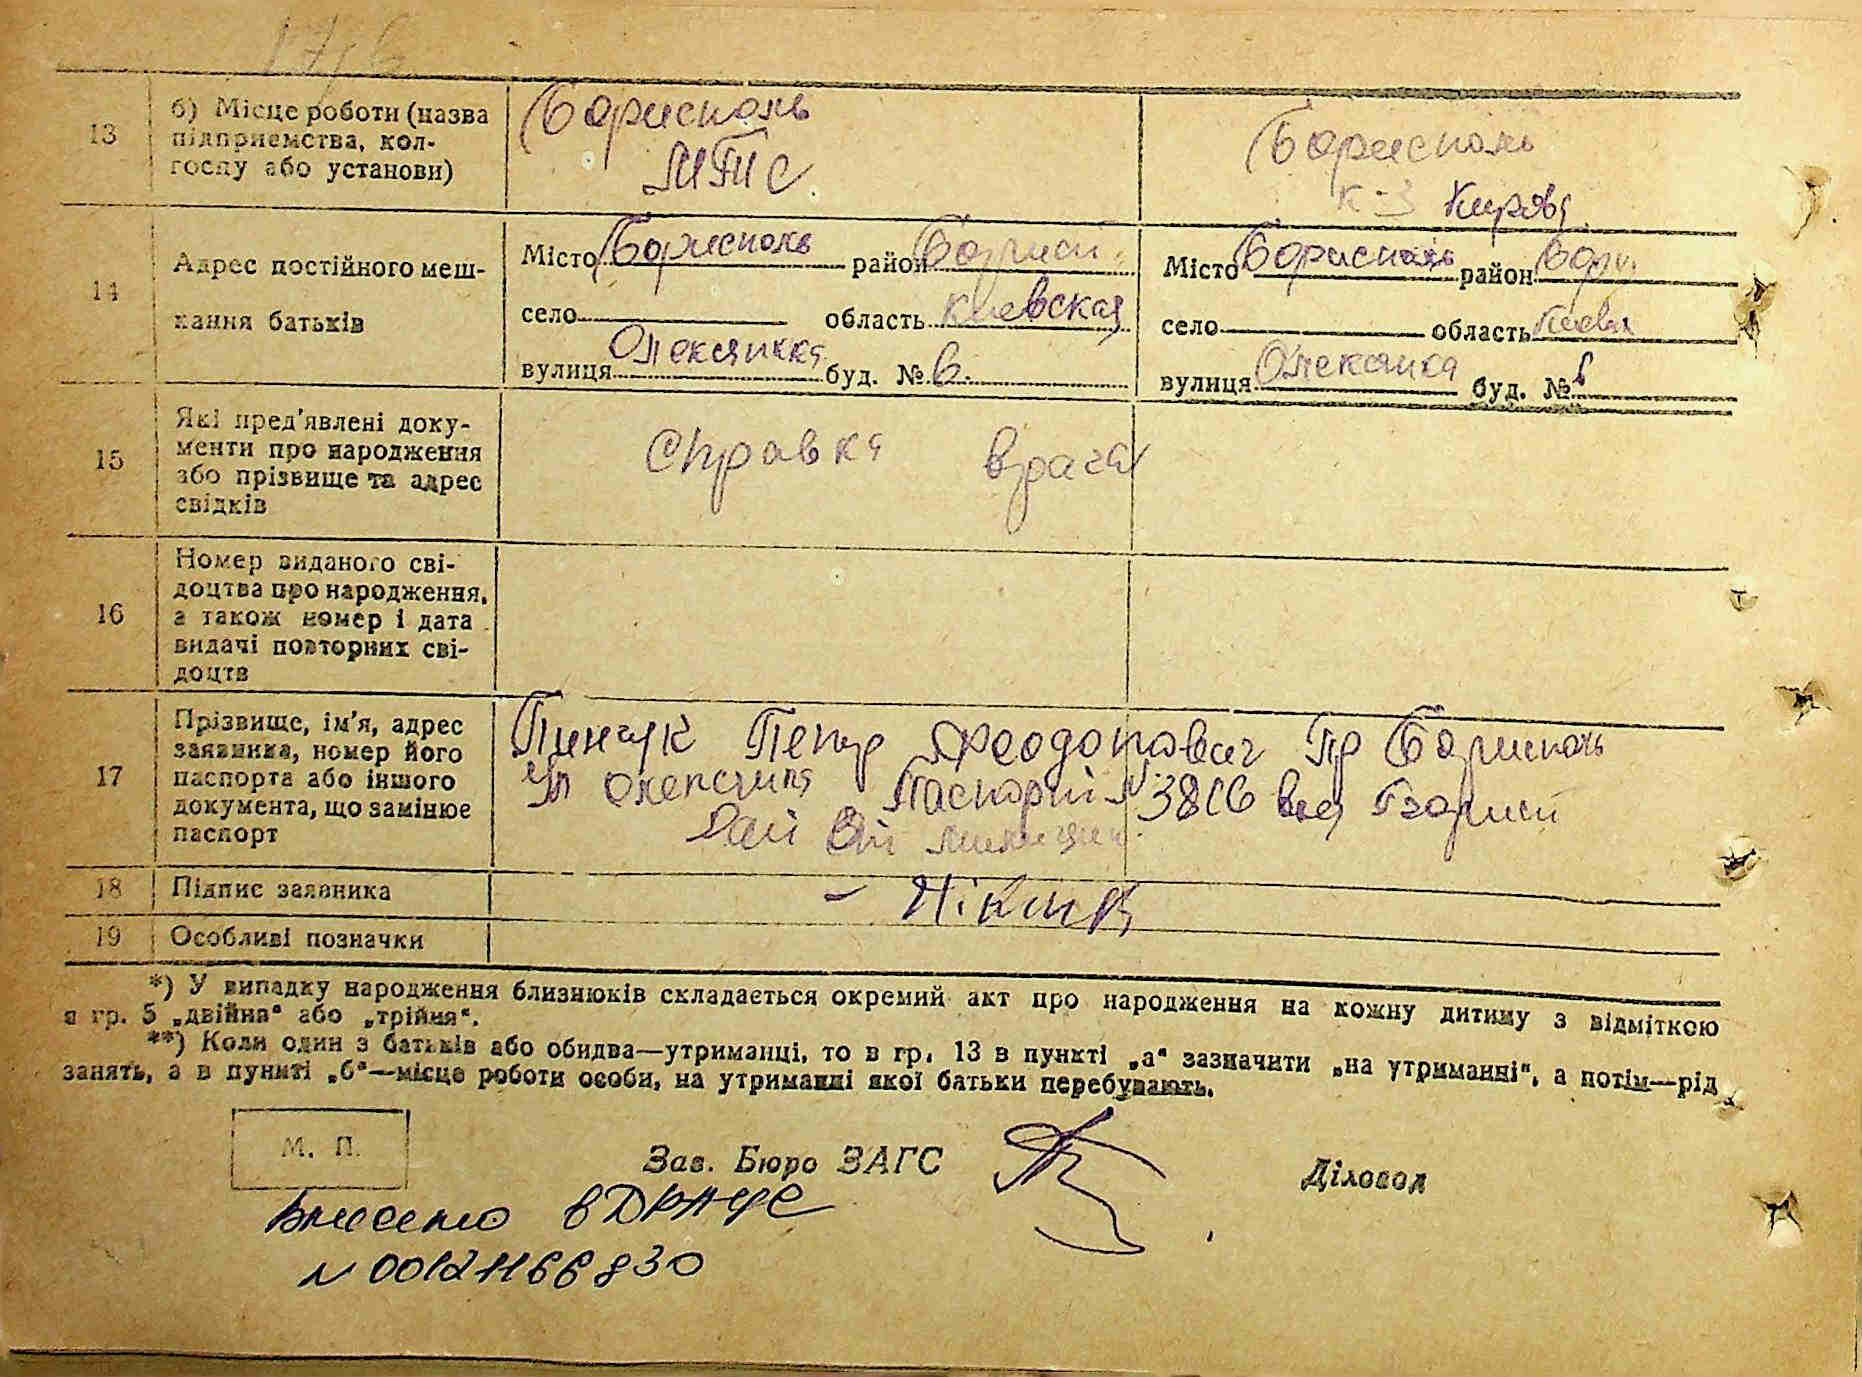 13
б) Місце роботи (назва
підприємства, кол-
госпу або установи)
Борисполь
МТС
Борисполь
к-з Кирова
14
Адрес постійного меш-
кання батьків
Місто Борисполь район Борисп.
село область Киевская
вулиця буд. № 6.
Місто Борисполь район Бор.
село область Киевск
вулиця буд. №
15
Які пред'явлені доку-
менти про народження
або прізвище та адрес
свідків
Справка врача
16
Номер виданого сві-
доцтва про народження,
а також номер і дата
видачі повторних сві-
доцтв
17
Прізвище, ім'я, адрес
заявника, номер його
паспорта або іншого
документа, що замінює
паспорт
Пинчук Петр Феодопович Гр Борисполь
ул Паспорт № 3816 выд Борисп
милиции
18
Підпис заявника
19
Особливі позначки
*) У випадку народження близнюків складається окремий акт про народження на кожну дитину з відміткою
в гр. 5 „двійня“ або „трійня“.
**) Коли один з батьків або обидва—утриманці, то в гр. 13 в пункті „а“ зазначити „на утриманні“, а потім—рід
занять, а в пункті „б“—місце роботи особи, на утриманні якої батьки перебувають.
М. П.
Зав. Бюро ЗАГС
Діловод
Внесено в ДРАЦС
N 00121166830